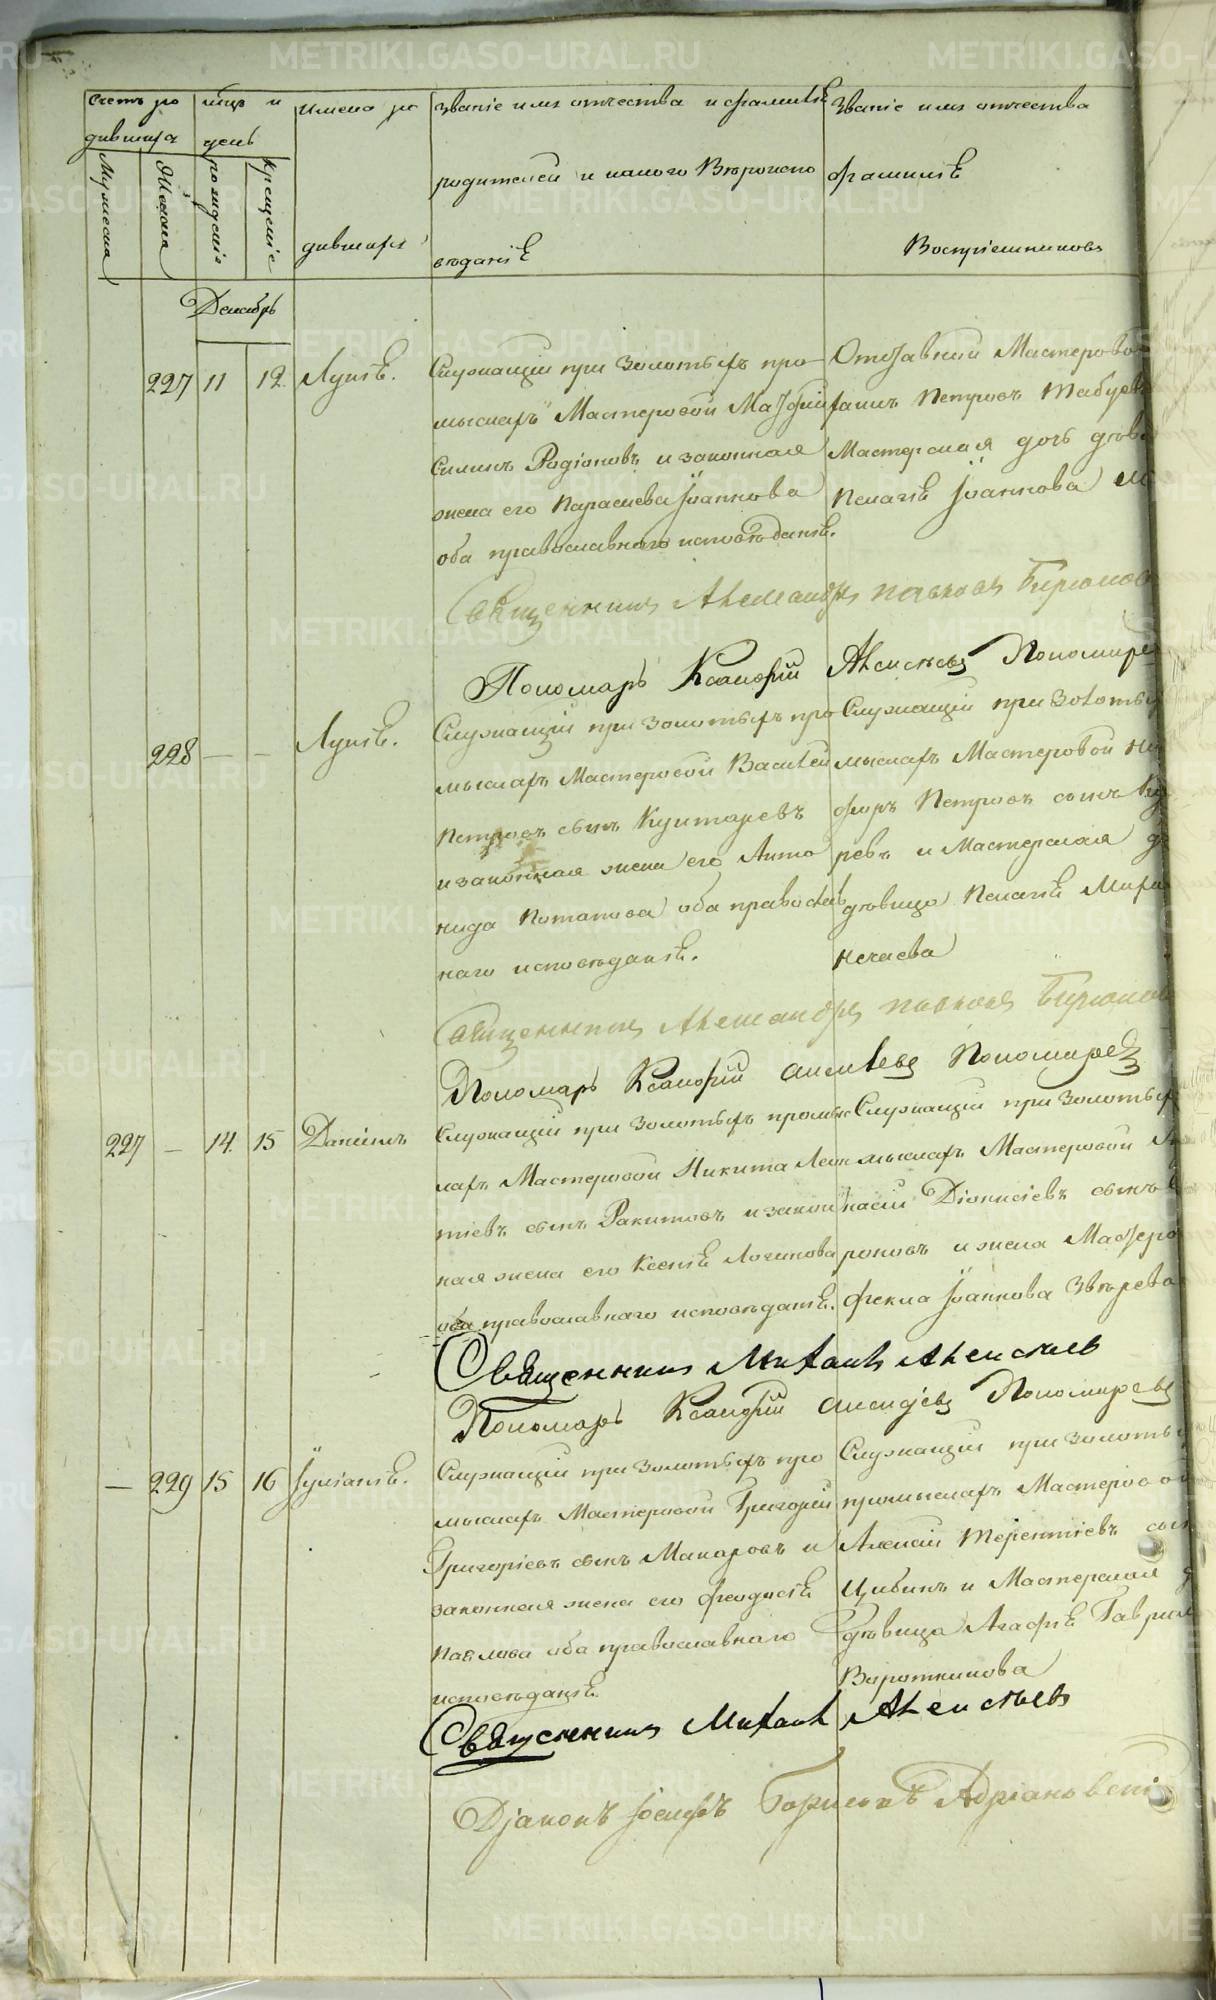 Счетъ ро
дившихся
мѣсяцъ и
день
Имена ро
дившихся
Званіе имя отчества и фамилiѣ
родителей и какого Вѣроиспо
вѣданiѣ
Званіе имя отчества
фамилiѣ
Воспріемниковъ
Мужеска
Женска
рожденія
крещеніе
Декабрь
227 11 12 Лукiѣ.
Служащій при Золотыхъ про
мыслахъ Мастеровой
Родіоновъ и законная
жена его Параскева Іоаннова
оба православнаго исповѣданiѣ.
Отставный Мастерово
Петровъ
Мастерская дочь дѣв
Пелагіѣ Іоаннова
Священникъ Александръ Павловъ Бирюков
Пономарь Ксанфій Алексѣевъ Пономарев
228 — — Лукiѣ.
Служащій при Золотыхъ про
мыслахъ Мастеровой Василей
Петровъ сынъ Куштаревъ
и законная жена его Анто
нида Потапова оба православ
наго исповѣданiѣ.
Служащій при Золоты
мыслахъ Мастеровой Ни
форъ Петровъ сынъ
ревъ и Мастерская
дѣвица Пелагіѣ
Нечаева
Священникъ Александръ Павловъ Бирюков
Пономарь Ксанфій Алексѣевъ Пономаревъ
227 — 14 15 Даніилъ
Служащій при Золотыхъ промыс
лахъ Мастеровой Никита Леон
тіевъ сынъ Ракитовъ и закон
ная жена его Ксеніѣ Логинова
оба православнаго исповѣданіѣ.
Служащій при Золотых
мыслахъ Мастеровой
насій Діонисіевъ сынъ
роновъ и жена Мастеро
Фекла Іоаннова Звѣрева
Священникъ Михаилъ Алексѣевъ
Пономарь Ксанфій Алексѣевъ Пономаревъ
— 229 15 16 Іуліаніѣ.
Служащій при Золотыхъ про
мыслахъ Мастеровой Григорій
Григорьевъ сынъ Макаровъ и
законная жена его Феодосіѣ
Павлова оба православнаго
исповѣданіѣ
Служащій при Золоты
промыслахъ Мастерово
Алексій Терентіевъ сын
Цибинъ и Мастерская
дѣвица Агафіѣ Гаврил
Воротникова
Священникъ Михаилъ Алексѣевъ
Діаконъ Іосифъ Борисовъ Адріановскі